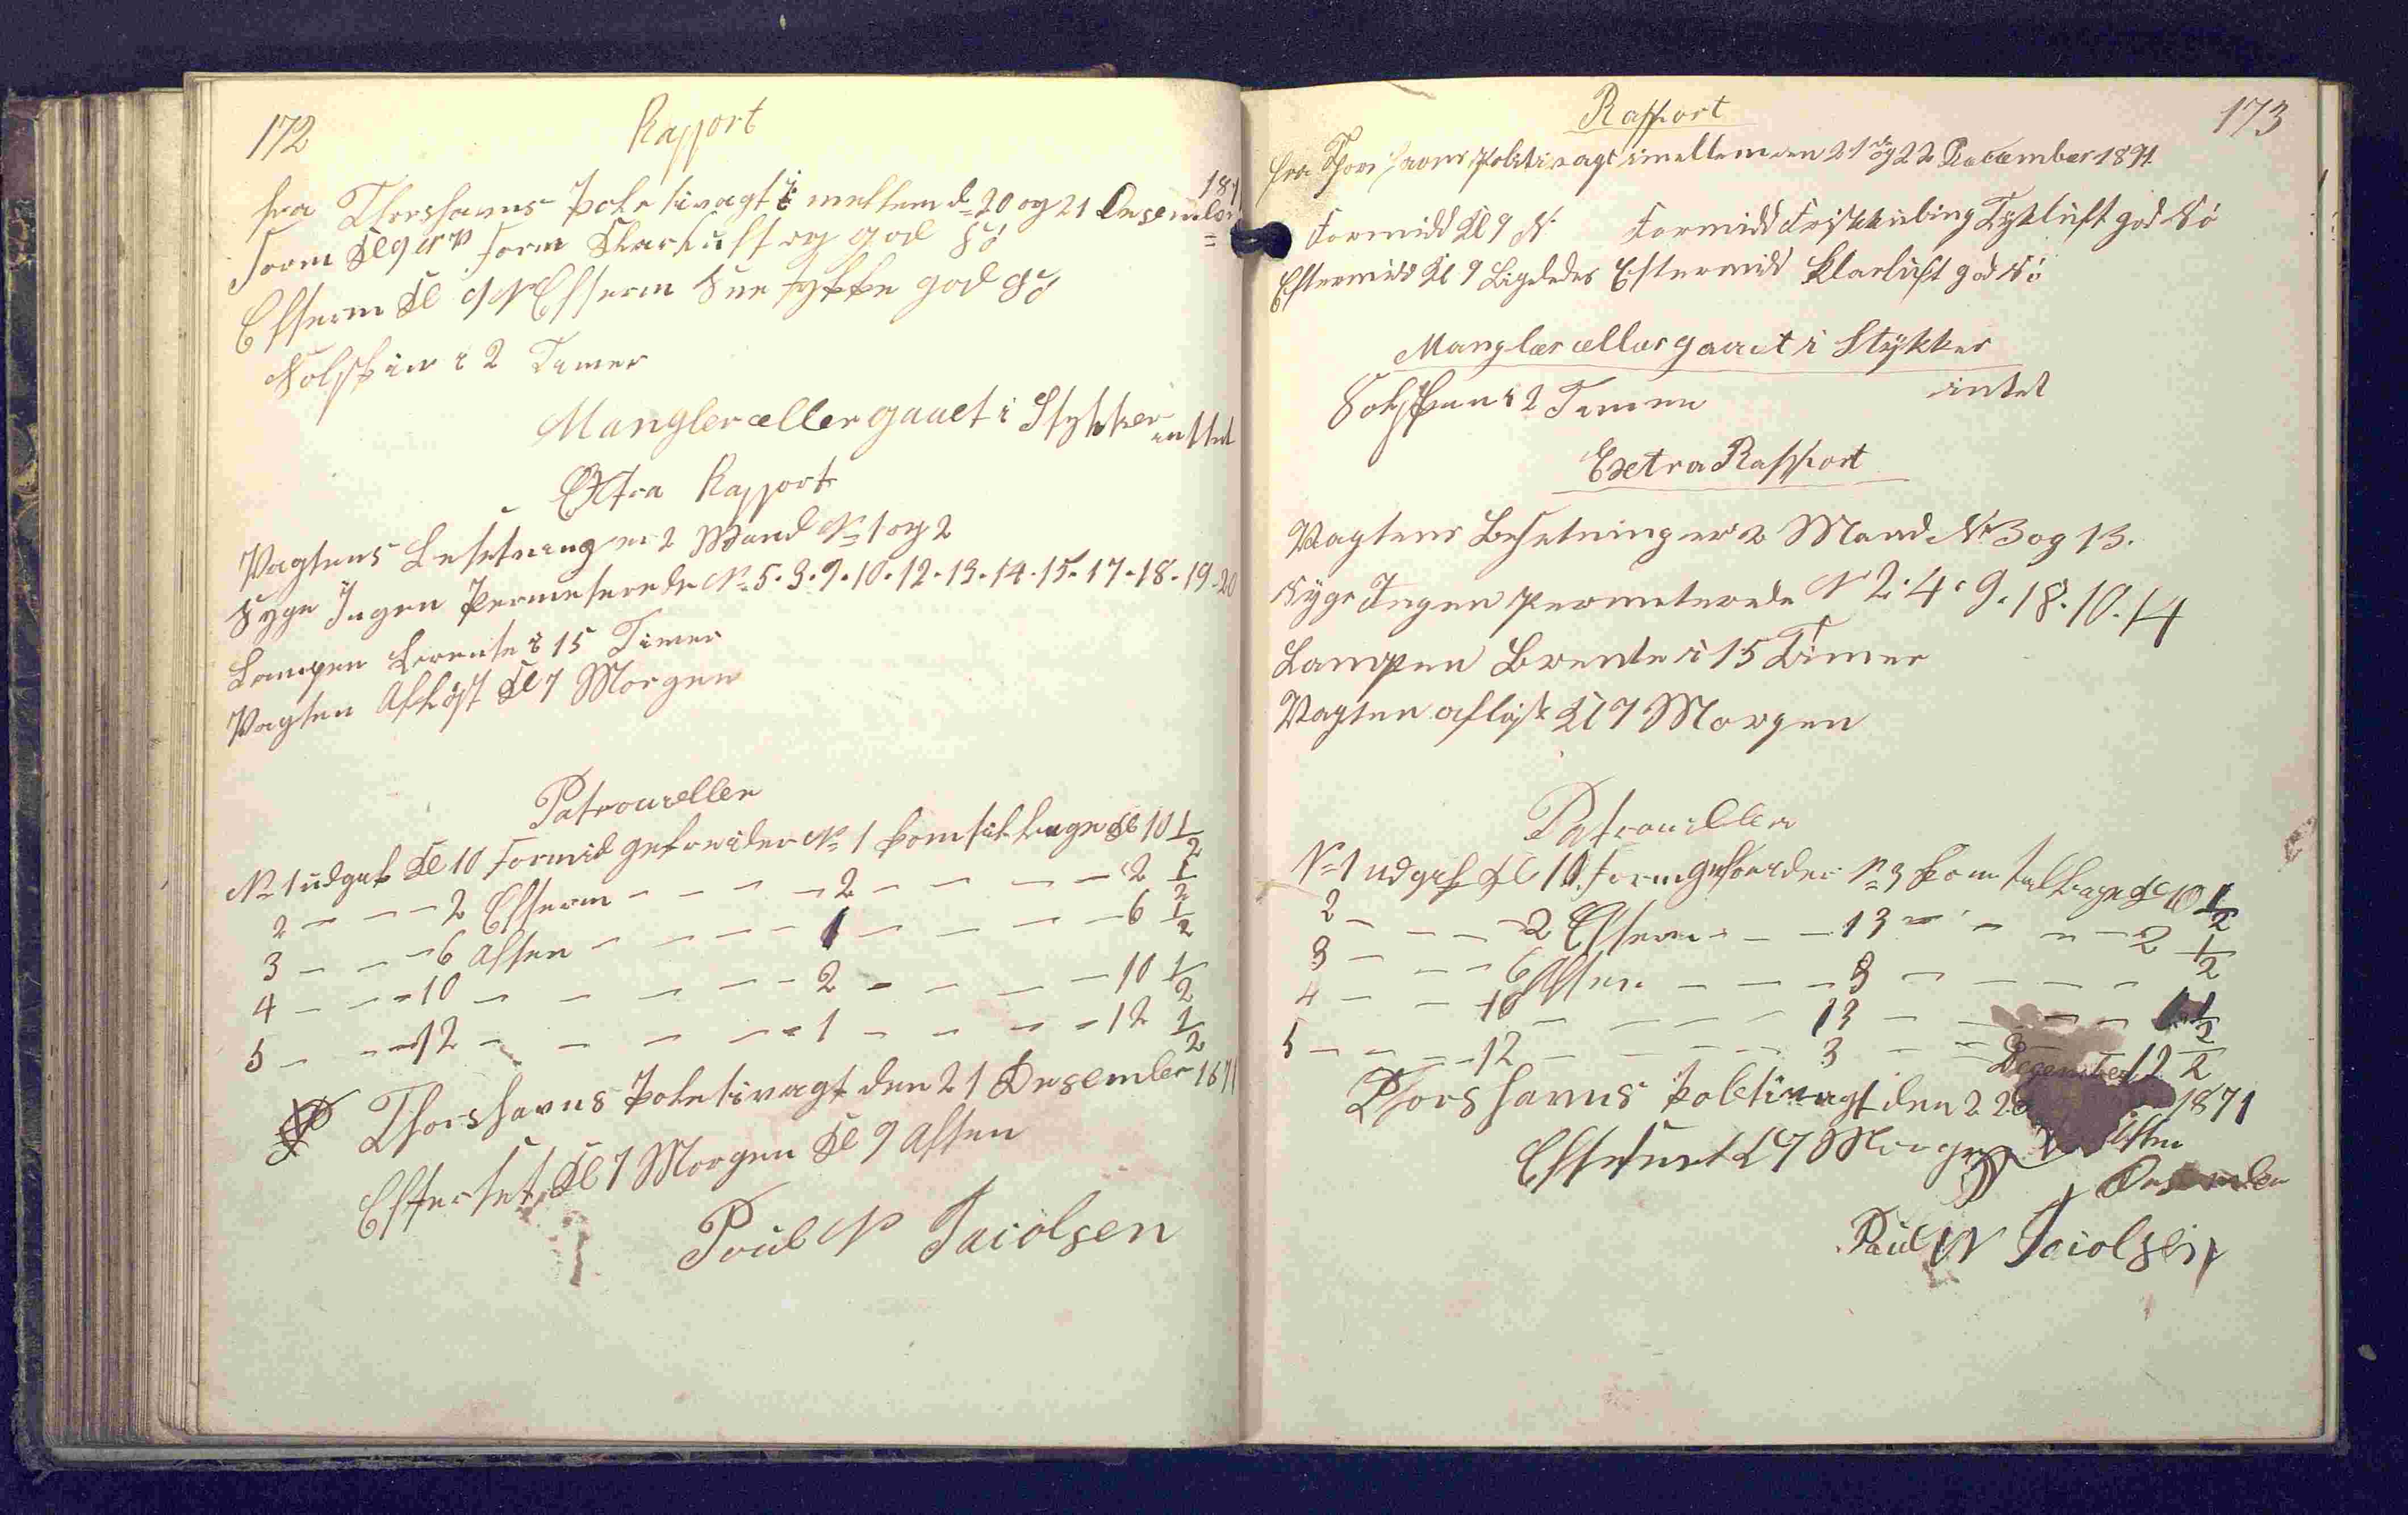 172
Rapport
fra Thorshavns Poletivagt i mellem d 20 og 21 Desember 187
Form Kl 9 Form Klarluft og god Sö
Efterm Kl 9 N Efterm Sne tykke god Sö
Solskin i 2 Timer
Mangler eller gaaet i Stykker inttet
Extra Rapport
Vagtens Besetning er 2 Mand No 1 og 2
Syge Ingen Permeterede No 5. 3. 9. 10. 12. 13. 14. 15. 17. 18. 19. 20
Lampen brente i 15 Timer
Vagten Aflöst Kl 7 Morgen
Patrouellen
No 1 udgik Kl 10 Formid gefreider No 1 kom tilbage Kl 10 1/2
2 — — — 2 Efterm — — — — 2 — — — — 2 1/2
3 — — — 6 Aften — — — — 1 — — — — 6 1/2
4 — — — 10 — — — — — 2 — — — — 10 1/2
5 — — — 12 — — — — — 1 — — — — 12 1/2
Thorshavns Poletivagt den 21 Desember 1871
Efterset Kl 7 Morgen Kl 9 Aften
Poul N Jacobsen
173
Rapport
fra Thorshavns Politivagt imellem den 21 og 22 December 1871
Formidd Kl 9 N. Formidd Frisk kuling Tykluft god Sö
Eftermidd Kl 9 Ligeledes Eftermidd Klarluft god Sö
Mangler eller gaaet i Stykker
Solskin i 2 Timer intet
Extra Rapport
Vagtens Besetning er 2 Mand No 3 og 13.
Syge Ingen Permeterede No 2. 4. 9. 18. 10. 14
Lampen Brente i 15 Timer
Vagten aflöst Kl 7 Morgen
Patrouillen
No 1 udgik Kl 10 Form gefreider No 3 kom tilbage Kl 10 1/2
2 — — — 2 Efterm — — 13 — — — — 2 1/2
3 — — — 6 Aften — — — 3 — — — —
4 — — — 10 — — — — 13 — — — — 1/2
5 — — — 12 — — — — 3 — — 12 1/2
Desember
Thorshavns Poletivagt den 22 1871
Efterset Kl 7 Morgen Aften
Desember
Poul N Jacobsen